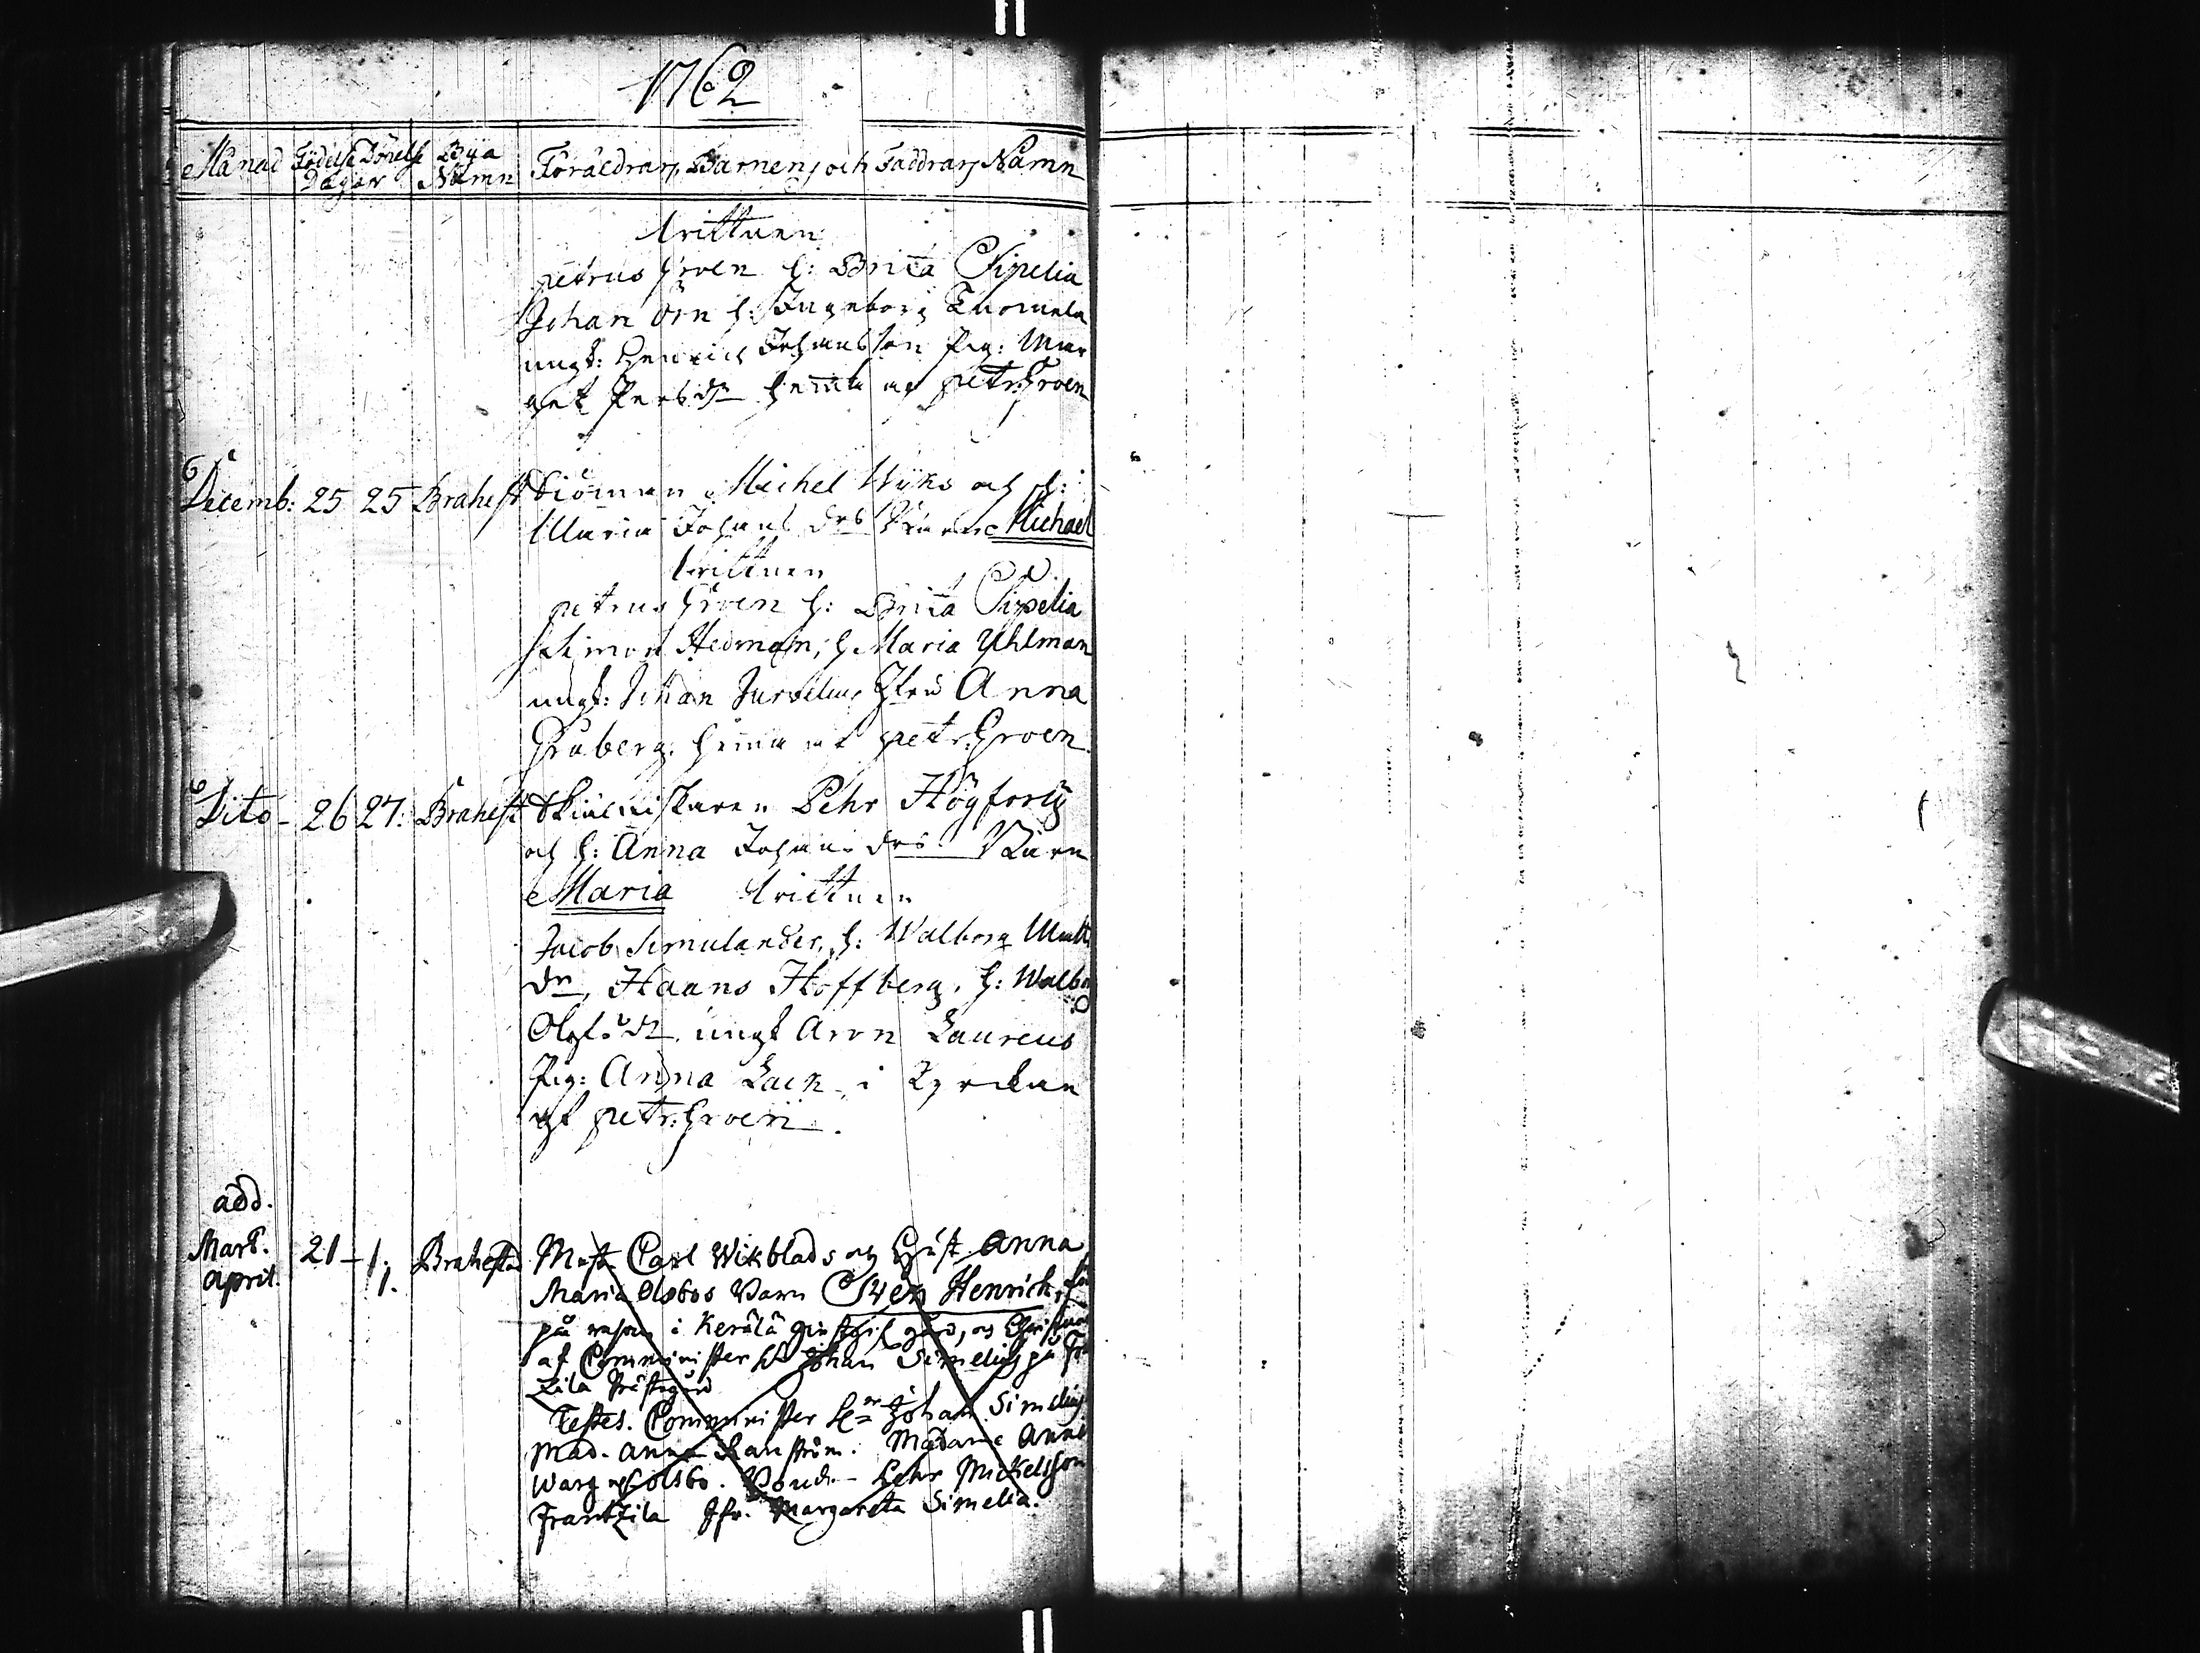 1762
Månad Födelse Dönelse Bya Föräldrars, Barnens, och Faddrars Namn
Dagar Namn
wittnen
petrus Groen h: Brita Sipelia
Johan Örn h: Ingeborg Tuomela
ungk: Henrich Johansson Pig: Mar
get Persdr hemma af petr: Groen
Decemb: 25 25 Brahest Siöman Michel Wijks och h:
Maria Johans drs Barn Michael
wittnen
petrus Groen h: Brita Sipelia
Simon Hedman, h Maria Uhlman
ungk: Johan Jfru Anna
Gruberg. hemma af petr: Groen
Dito - 26 27: Brahest Pehr Högfors
och h: Anna Johans drs Barn
Maria wittnen
Jacob Simulander, h: Walborg Matts
dr, Haans Hoffberg, h: Walbor
Olofsdr ungk Aron Laureus
Pig: Anna Lack i Kyrckan
af petr: Groen.
add.
Mart. 21 - 1. Brahestad Mast Carl Wikblads och Hust Anna
April. 1. Maria Olsbos Barn Swen Henrick, fö
på resan i Kerälä gästgif gård, och Christnat
af Comminister Hr Johan Simelius på Fr
zila Prästgård
Testes. Comminister Hr Johan Simelius
Mad. Anna Ranström. Madame Anna
Warg Olsbo. Bond. Pehr Mickelsson
Frantzila Jfr. Margareta Simelia.